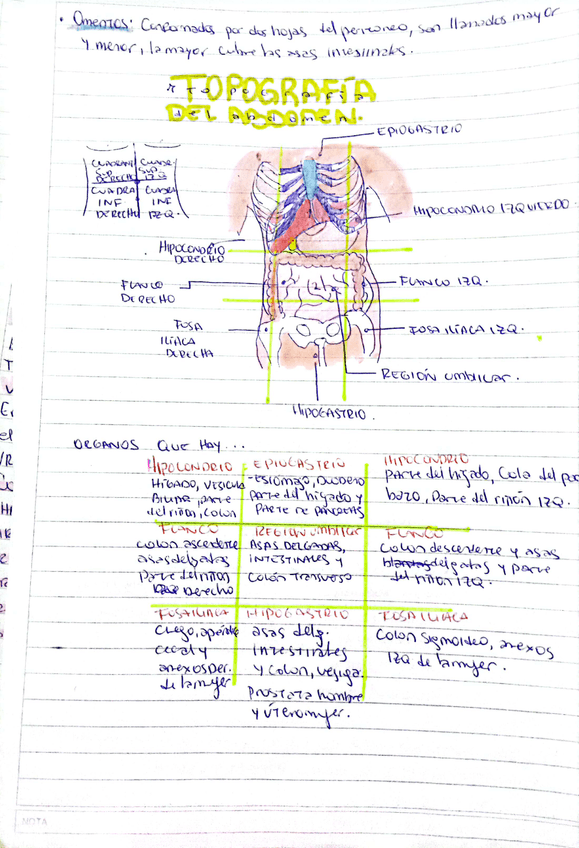 • Omentos: Conformados por dos hojas del peritoneo, son llamados mayor
y menor, la mayor cubre las asas intestinales.
TOPOGRAFÍA
DEL ABDOMEN.
EPIGASTRIO
CUADRANT SUP DERECHO
CUADR SUP IZQ
CUADRA INF DERECHO
CUADRA INF IZQ.
HIPOCONDRIO IZQUIERDO
HIPOCONDRIO
DERECHO
FLANCO
DERECHO
FLANCO IZQ.
FOSA
ILIÁCA
DERECHA
FOSA ILIÁCA IZQ.
REGIÓN UMBILICAR.
HIPOGASTRIO.
ORGANOS QUE HAY...
HIPOCONDRIO
HÍGADO, VESICULA
BILIAR, PARTE
del riñon, colon
EPIGASTRIO
-Estomago, Duodeno
parte del higado y
parte de páncreas
HIPOCONDRIO
parte del higado, Cola del
bazo, Parte del riñón IZQ.
FLANCO
colon ascendente
asas delgatas
parte del riñon
Derecho
REGION umbilicar
ASAS DELGADAS,
INTESTINALES y
COLON TRANSVERSO
FLANCO
Colon descendente y asas
delgatas y parte
del riñon IZQ.
FOSA ILIACA
Ciego, apéndice
cecal y
anexos DER.
de la mujer
HIPOGASTRIO
asas delg.
intestinales
y colon, vejiga.
Prostata hombre
y útero mujer.
FOSA ILIACA
Colon sigmoideo, anexos
IZQ de la mujer.
NOTA